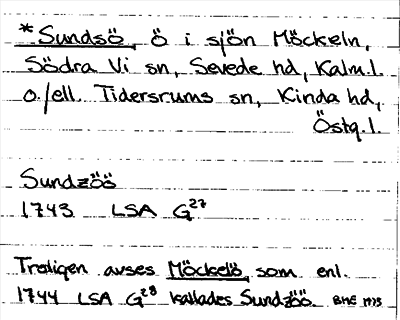 *Sundsö, ö i sjön Möckeln,
Södra Vi sn, Sevede hd, Kalm.l.
o./ell. Tidersrums sn, Kinda hd,
Östg.l.
Sundzöö
1743 LSA G27
Troligen avses Möckelö, som enl.
1744 LSA G28 kallades Sundzöö.